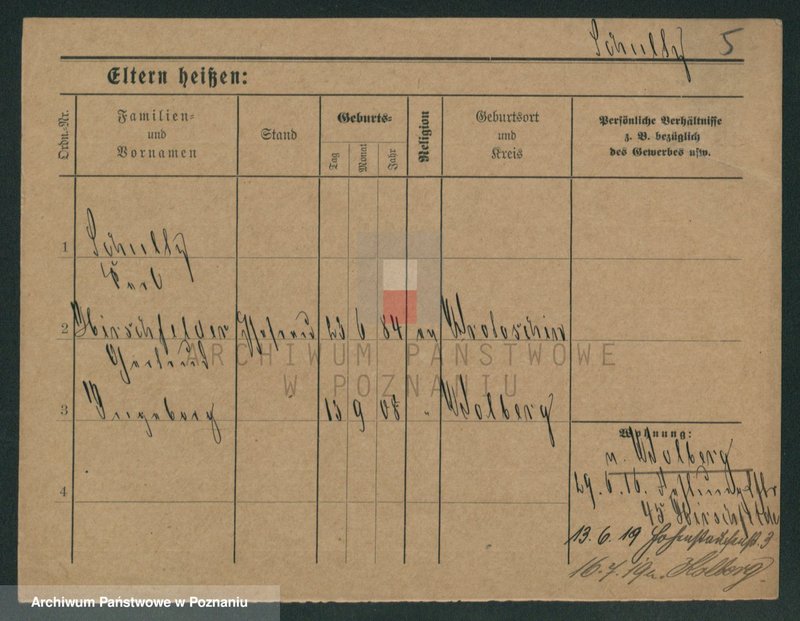 Schultz 5
Eltern heißen:
Ordn.-Nr.
Familien=
und
Vornamen
Stand
Geburts=
Tag
Monat
Jahr
Religion
Geburtsort
und
Kreis
Persönliche Verhältnisse
z. B. bezüglich
des Gewerbes usw.
1 Schultz
2 Hirschfelder Ehefrau 23 6 84 ev Krotoschin
Gertrud
3 Ingeborg 15 9 08 " Kolberg
Wohnung:
n. Kolberg
29. 6. 16.
45
13. 6. 19 Hohenstaufenstr. 3
16. 7. 19 n. Kolberg.
4
ARCHIWUM PAŃSTWOWE
W POZNANIU
Archiwum Państwowe w Poznaniu